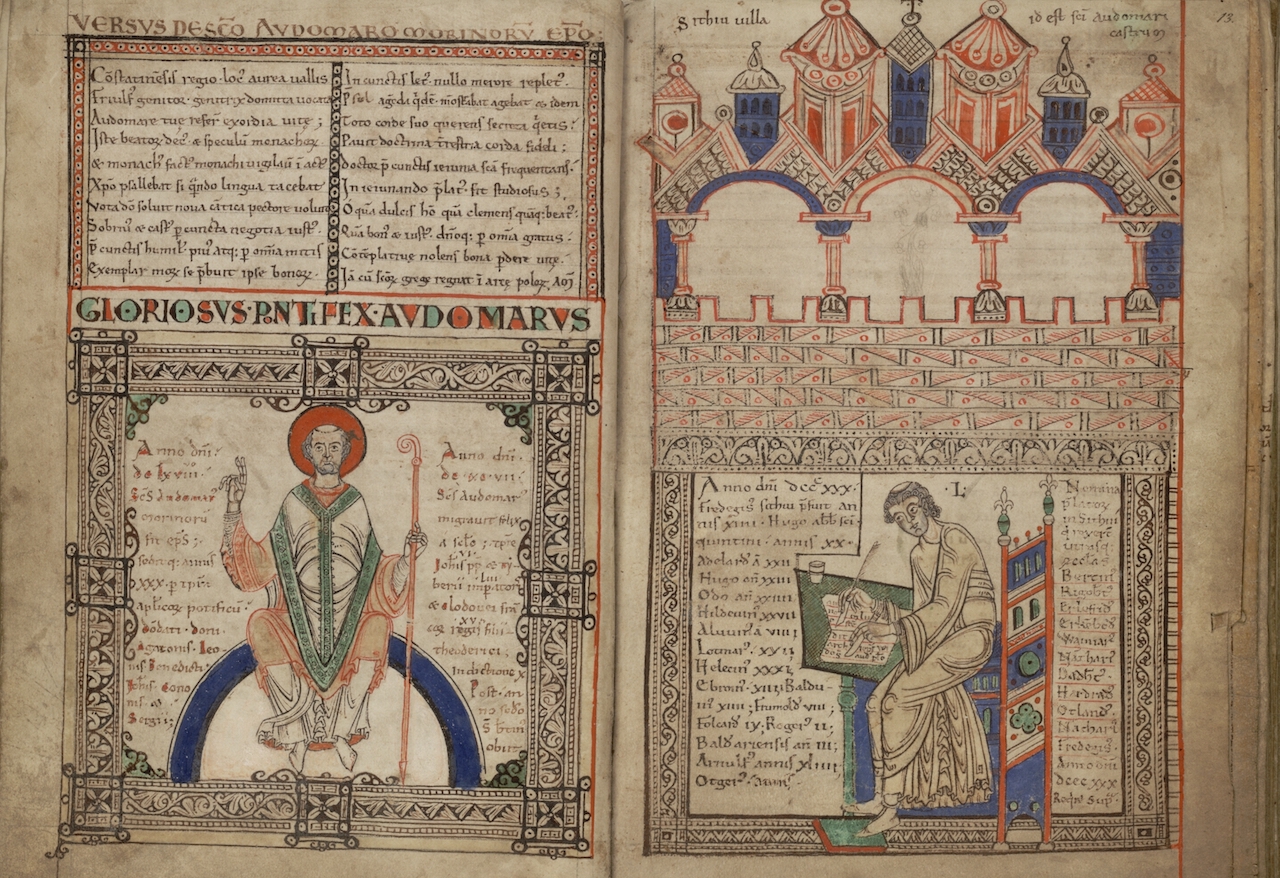 VERSVS DE SCO AVDOMARO MORINORV EPO
Costatinesis regio loc aurea vallis
Fraulf genitor genitrix domitta vocata
Audomare tue refert exordia vite;
Iste beator dec & speculu monachor
& monach fact monachi vigilavit i act
Xpo psallebat si qndo lingua tacebat
Vota do soluit nova catica pectore voluit
Sobrius & cast p cuncta negotia iust
p cunctis humil pius atq; p omia mitis
Exemplar mor se pbuit ipse bonor
In cunctis let nullo merore replet
P sol agedi qde
agebat & idem
Toto corde suo querens secreta qetis
Pavit doctrina trestria corda fideli;
doctor p cunctis ieiunia sca frequentans
In ieiunando plat fit studiosus;
O qua dulcis ho qua clemens quaq; beat
Qua bon & iust dnoq; p omia gratus
Coteplative nolens bona pdere vite
Ia cu scor grege regnat i arce polor. Am
GLORIOSVS PNTIFEX AVDOMARVS
Anno dni
dc lxviii
Scs Audomar
morinoru
fit eps;
sedit q; annis
xxx p tpr
aplicor potificu
dodati doni
Agatonis Leo
nis Benedicti
Iohis cono
nis &
Sergii;
Anno dni
dc xc vii
Scs Audomar
migravit felix
a sclo; tpre
Iohis pp & ty
berii imperator
& clodovei fra
regis filii
theoderici;
indictione x
Post an
no sedo
S btin
obiit
Sithiu villa
id est sci Audomari
castrum
13
Anno dni dccc xxx
Fredegis sithiu pfuit an
nis xiiii Hugo abb sci
quintini annis xx
Adelard a xxii
Hugo an xxiii
Odo an xxiiii
Hildeuin xxvii
Aluuin a viii
Lotmar xvii
Helecin xxxi
Ebroin xii; Baldu
in xiiii; Humold viii;
Folcard ix; Roger ii;
Bald ariensis an iii;
Arnulf annis xliiii
Otger annis
L
Nomina
platoz
in sithiu
q rexerat
utrasq;
ecclas
Bertin
Rigobt
Erlefrid
Erkebod
Waimar
Nathari
Dadhe
Hardrad
Otland
Nathari
Fredegis
Anno dni
dccc xxx
Recps sup